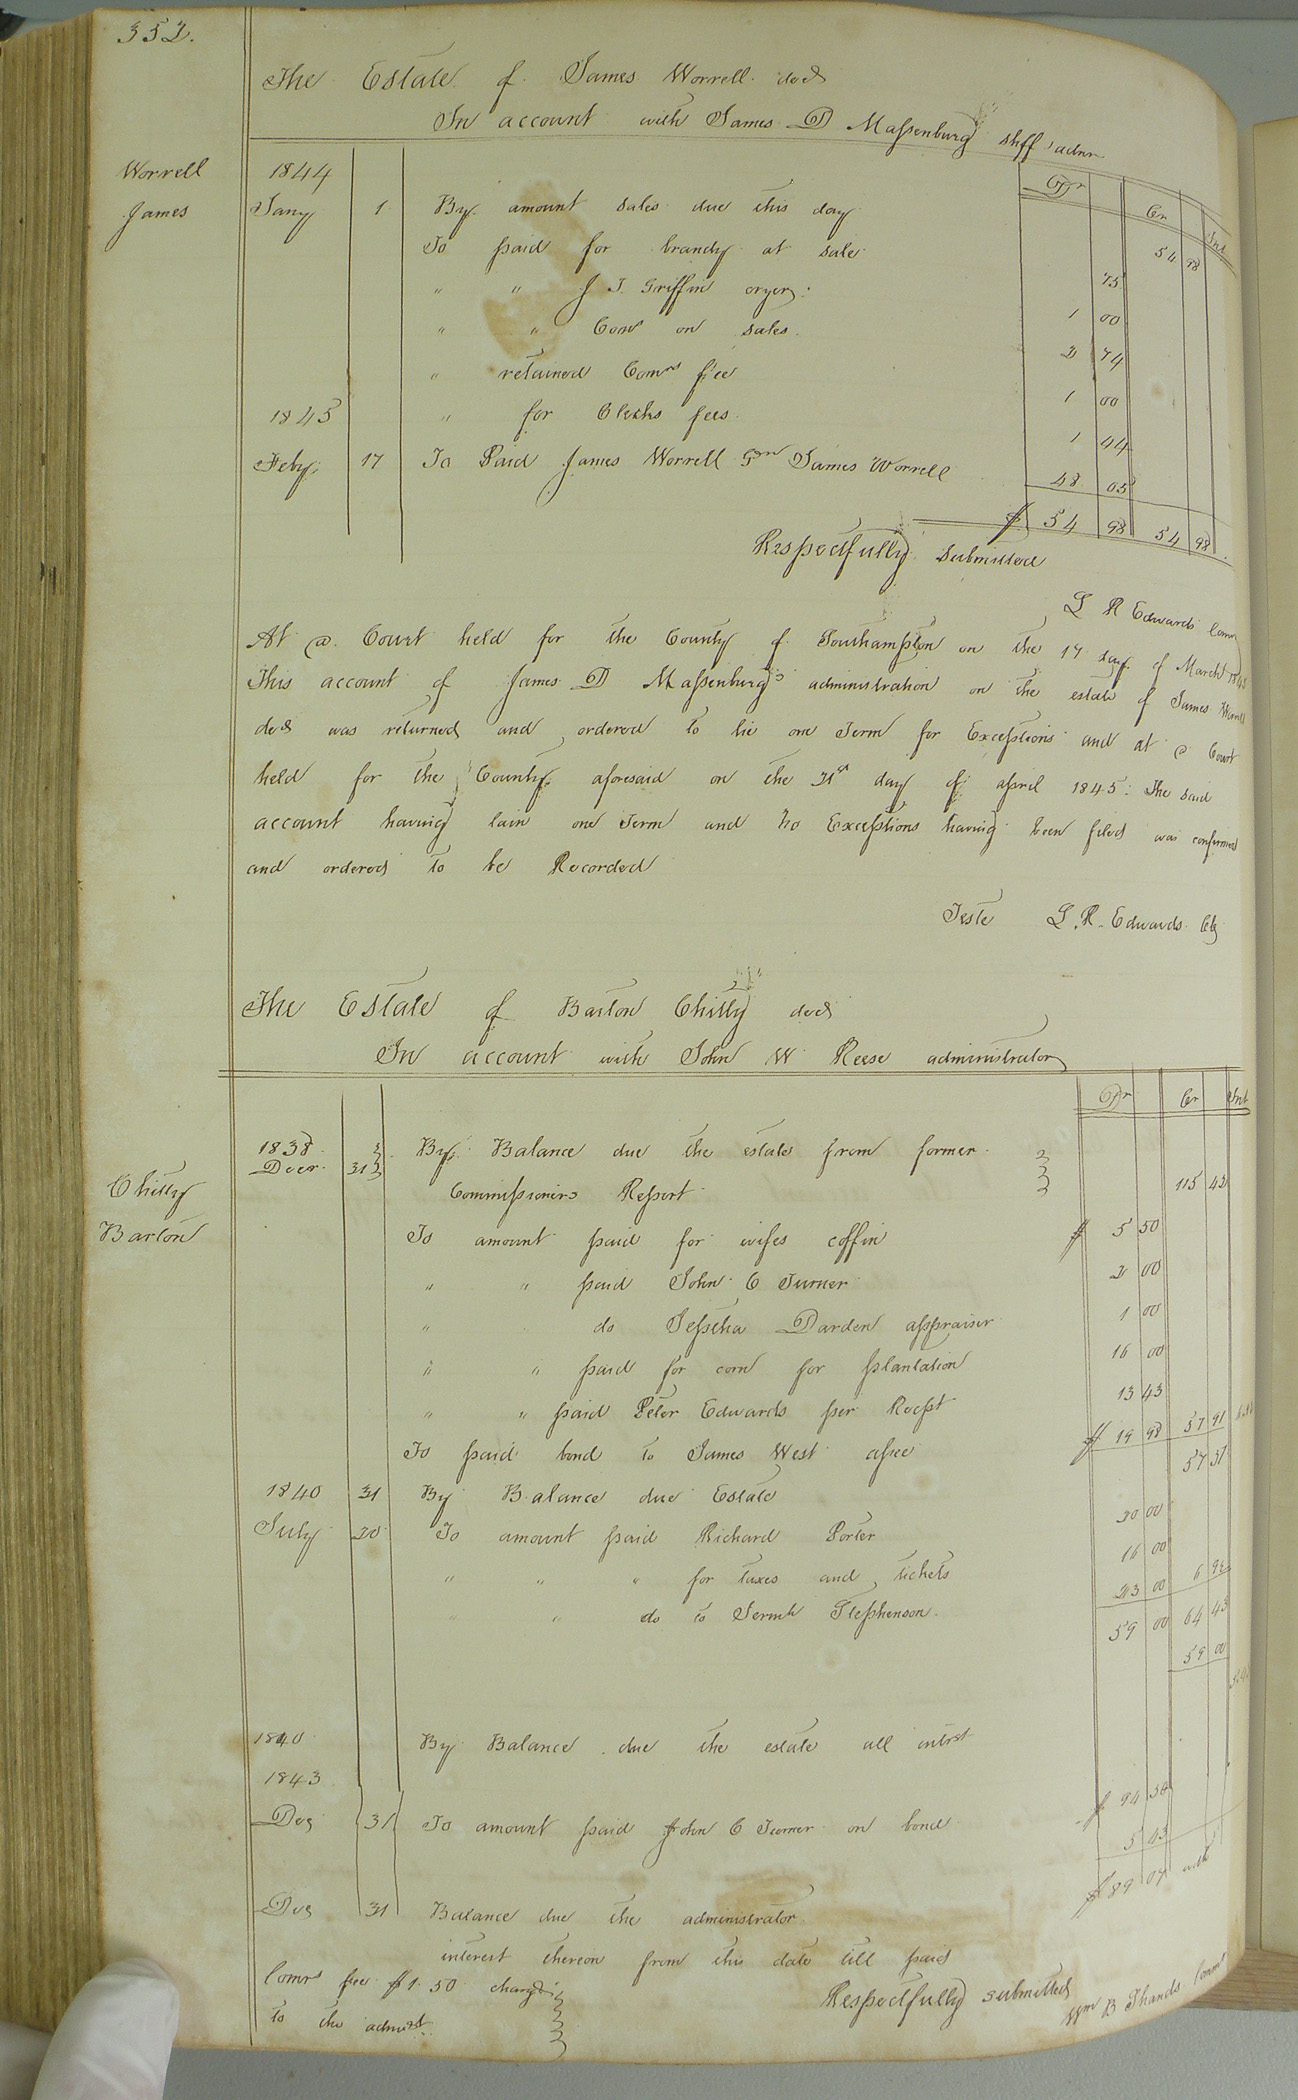 352.
The Estate of James Worrell decd
In account with James D Massenburg shff admr
Dr Cr Int
Worrell James
1844
Jany 1 By amount sales due this day 54 98
To paid for brandy at sale 75
" " J T. Griffin cryer 1 00
" " Coms on sales 2 74
" retained Comrs fee 1 00
1845 " for Clerks fees 1 44
Feby 17 To Paid James Worrell Gn James Worrell 48 05
$ 54 98 54 98
Respectfully submitted
L R Edwards Comr
At a Court held for the County of Southampton on the 17 day of March 1845
This account of James D Massenburg's administration on the estate of James Worrell
decd was returned and ordered to lie one Term for Exceptions and at a Court
held for the County aforesaid on the 21st day of april 1845: The said
account having lain one Term and no Exceptions having been filed was confirmed
and ordered to be Recorded
Teste L. R. Edwards Clk
The Estate of Barton Chitty decd
In account with John W Reese administrator
Dr Cr Int
Chitty Barton
1838
Decr 31 By Balance due the estate from former
Commissioners Report 115 42
To amount paid for wifes coffin $ 5 50
" " paid John C Turner 2 00
" do Jeptha Darden appraiser 1 00
" " paid for corn for plantation 16 00
" " paid Peter Edwards per Recpt 13 43
To paid bond to James West assee $ 19 98 57 91
1840 31 By Balance due Estate 57 51
July 20 To amount paid Richard Porter 20 00
" " " for taxes and tickets 16 00
" " do to Jermh Stephenson 23 00 6 92
59 00 64 43
59 00
1840 By Balance due the estate all intrst
1843
Dec 31 To amount paid John C Turner on bond $ 94 50
5 43
Dec 31 Balance due the administrator $ 89 07 with
interest thereon from this date till paid
Comrs fee $1.50 charged
to the admist.
Respectfully submitted
Wm B Shands Comr